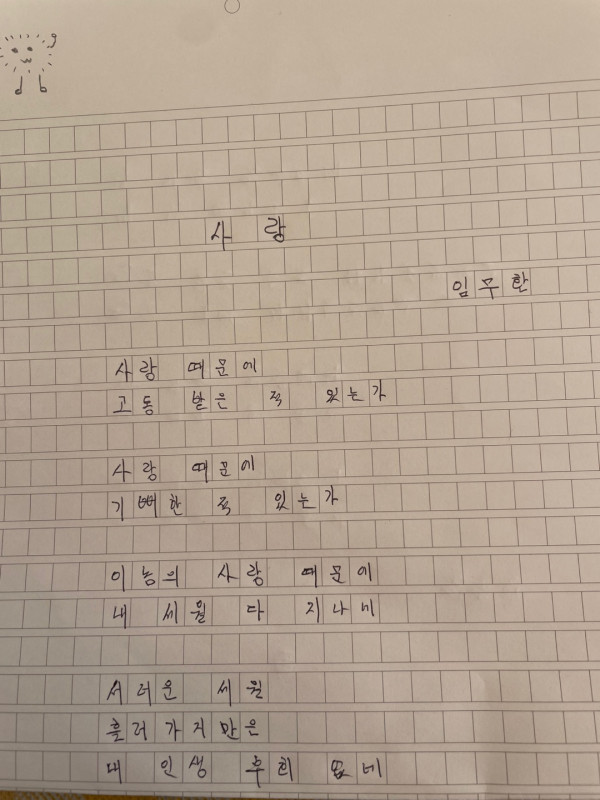 사랑
임무한
사랑 때문에
고통 받은 적 있는가
사랑 때문에
기뻐한 적 있는가
이놈의 사랑 때문에
내 세월 다 지나네
서러운 세월
흘러가지만은
내 인생 후회 없네